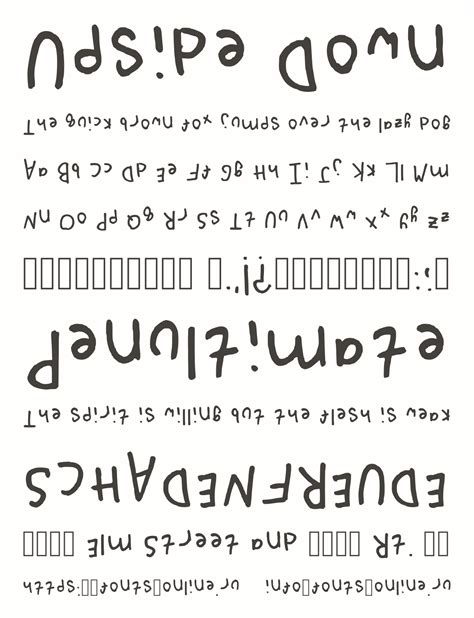 Upside Down
The quick brown fox jumps over the lazy dog
Aa Bb Cc Dd Ee Ff Gg Hh Ii Jj Kk Ll Mm
Nn Oo Pp Qq Rr Ss Tt Uu Vv Ww Xx Yy Zz
.,"!?:;.
Penultimate
The spirit is willing but the flesh is weak
SCHADENFREUDE
Elm Street and Rt.